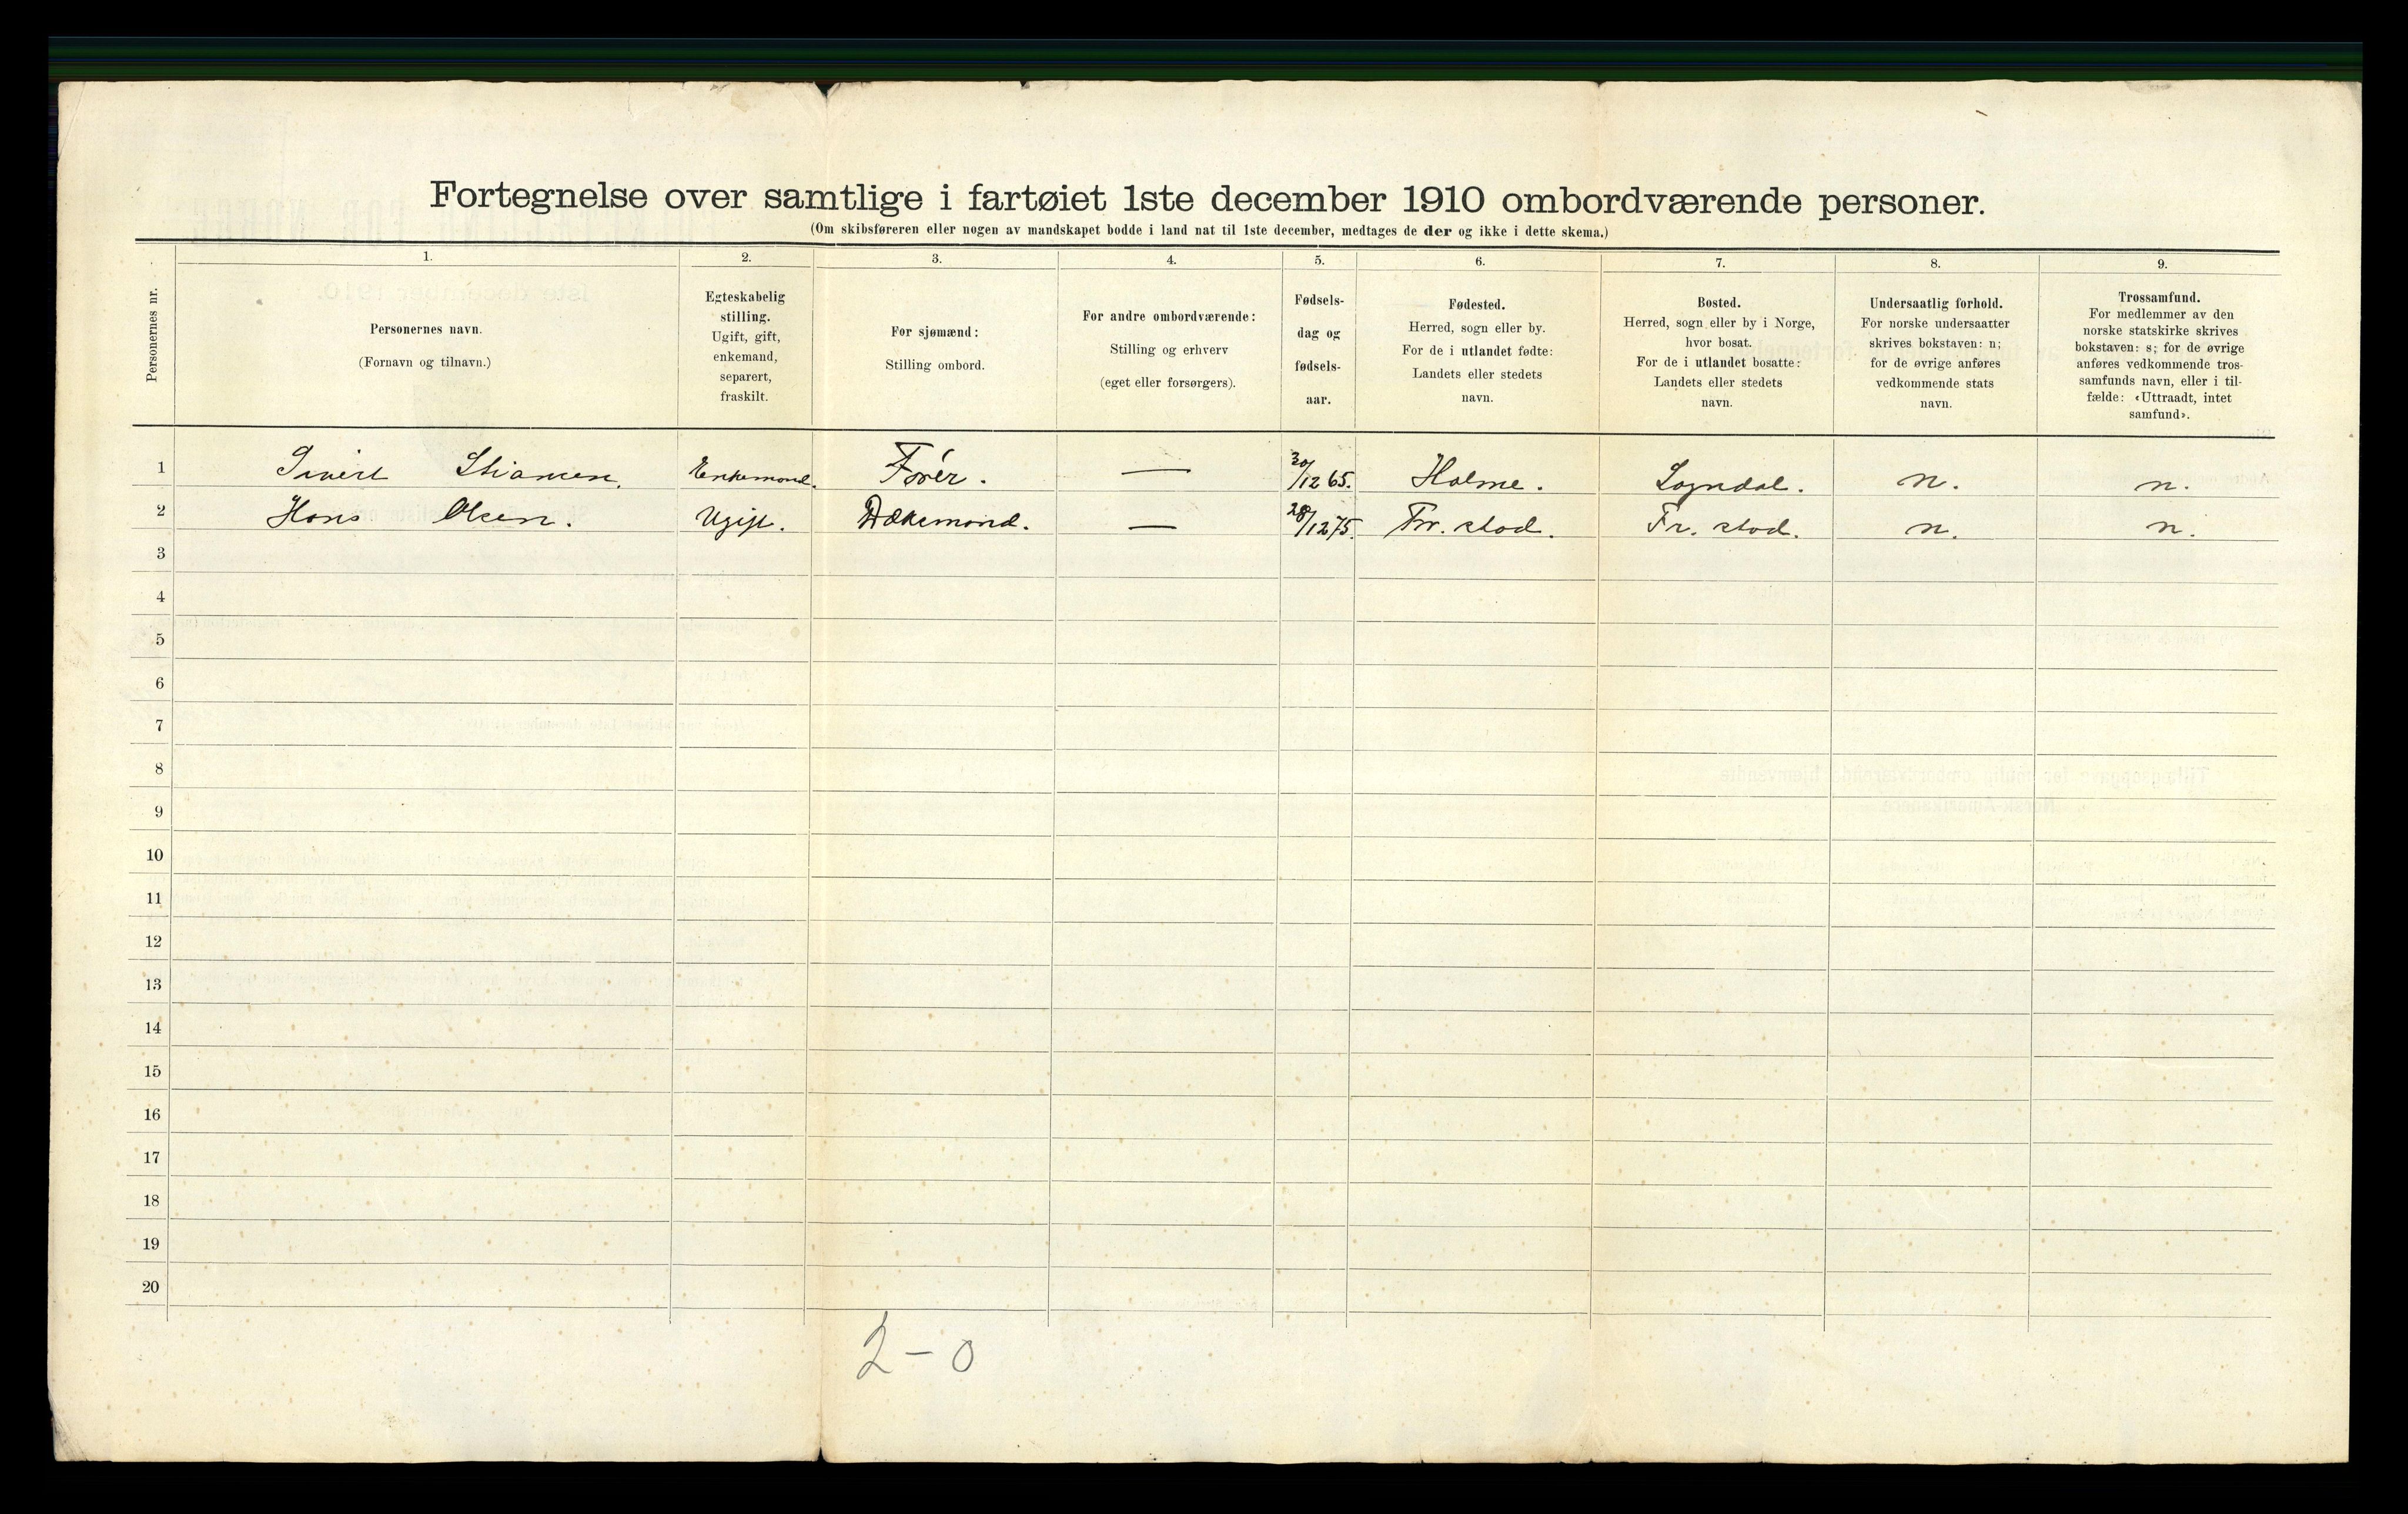 Fortegnelse over samtlige i fartøiet 1ste december 1910 ombordværende personer.
(Om skibsføreren eller nogen av mandskapet bodde i land nat til 1ste december, medtages de der og ikke i dette skema.)
Personernes nr.
1.
Personernes navn.
(Fornavn og tilnavn.)
2.
Egteskabelig
stilling.
Ugift, gift,
enkemand,
separert,
fraskilt.
3.
For sjømænd:
Stilling ombord.
4.
For andre ombordværende:
Stilling og erhverv
(eget eller forsørgers).
5.
Fødsels-
dag og
fødsels-
aar.
6.
Fødested.
Herred, sogn eller by.
For de i utlandet fødte:
Landets eller stedets
navn.
7.
Bosted.
Herred, sogn eller by i Norge,
hvor bosat.
For de i utlandet bosatte:
Landets eller stedets
navn.
8.
Undersaatlig forhold.
For norske undersaatter
skrives bokstaven: n;
for de øvrige anføres
vedkommende stats
navn.
9.
Trossamfund.
For medlemmer av den
norske statskirke skrives
bokstaven: s; for de øvrige
anføres vedkommende tros-
samfunds navn, eller i til-
fælde: «Uttraadt, intet
samfund».
1 Enkemand. Fører. — 30/12 65. Holme. Sogndal. n. n.
2 Hans Olsen. Ugift. Dæksmand. — 28/12 75. Fr. stad. Fr. stad. n. n.
3
4
5
6
7
8
9
10
11
12
13
14
15
16
17
18
19
20
2 – 0